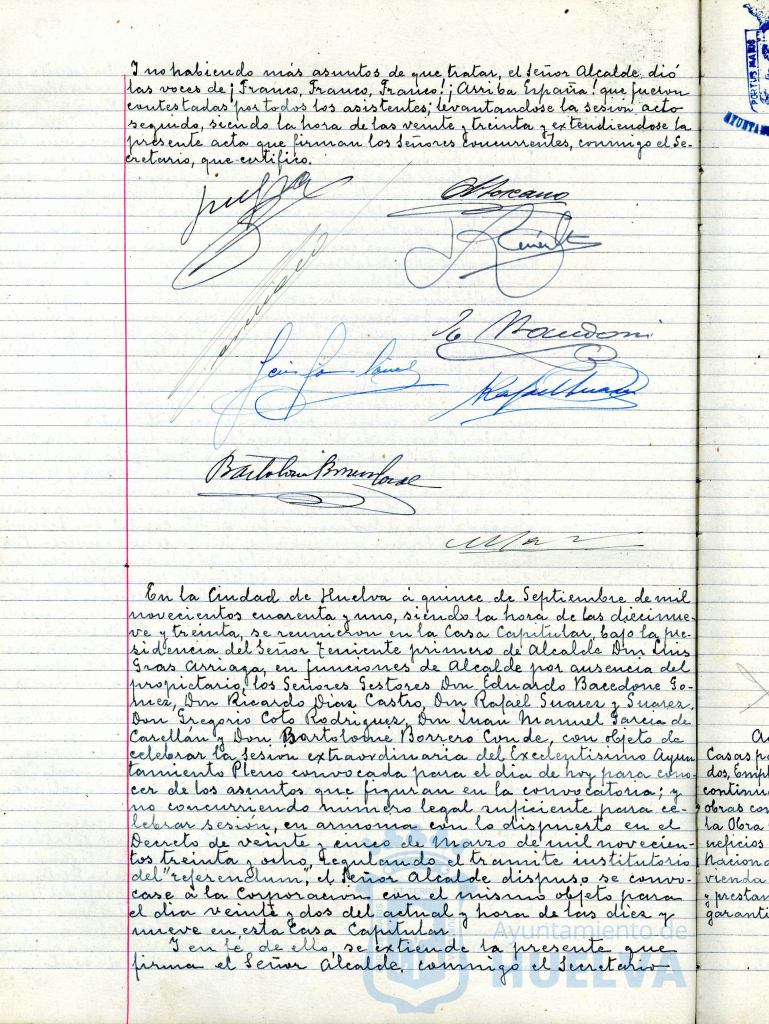 Y no habiendo más asuntos de que tratar, el Señor Alcalde dió
las voces de ¡Franco, Franco, Franco! ¡Arriba España! que fueron
contestadas por todos los asistentes; levantandose la sesión acto
seguido, siendo la hora de las veinte y treinta y extendiendose la
presente acta que firman los Señores Concurrentes, conmigo el Se-
cretario, que certifico.
En la Ciudad de Huelva á quince de Septiembre de mil
novecientos cuarenta y uno, siendo la hora de las diecinue-
ve y treinta, se reunieron en la Casa Capitular, bajo la pre-
sidencia del Señor Teniente primero de Alcalde Don Luis
Gras Arriaga, en funciones de Alcalde por ausencia del
propietario, los Señores Gestores Don Eduardo Bacedone Go-
mez, Don Ricardo Díaz Castro, Don Rafael Suarez y Suarez,
Don Gregorio Coto Rodriguez, Don Juan Manuel Garcia de
Carellán y Don Bartolomé Borrero Conde, con objeto de
celebrar la sesion extraordinaria del Excelentisimo Ayun-
tamiento Pleno convocada para el dia de hoy para cono-
cer de los asuntos que figuran en la convocatoria; y
no concurriendo número legal suficiente para ce-
lebrar sesión, en armonia con lo dispuesto en el
Decreto de veinte y cinco de Marzo de mil novecien-
tos treinta y ocho, regulando el tramite institutorio
del "referendum", el Señor Alcalde dispuso se convo-
case á la Corporación con el mismo objeto para
el dia veinte y dos del actual y hora de las diez y
nueve en esta Casa Capitular.
Y en fé de ello, se extiende la presente que
firma el Señor Alcalde, conmigo el Secretario
Ayuntamiento de
HUELVA
PORTUS MARIS
Casas pa
dos, Empl
continu
obras con
la Obra
neficios
Naciona
vienda
y prestan
garanti